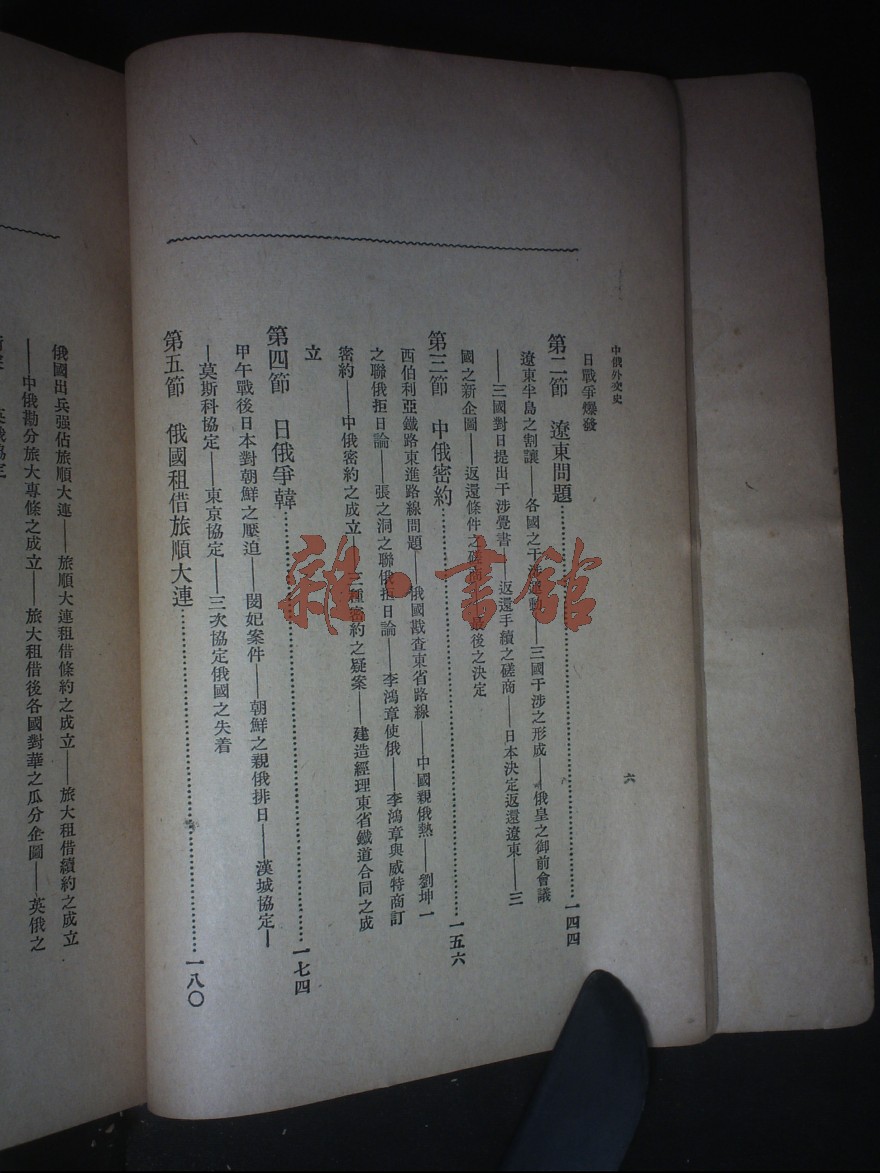 中俄外交史
六
日戰爭爆發
第二節　遼東問題……一四四
遼東半島之割讓——各國之干涉運動——三國干涉之形成——俄皇之御前會議
——三國對日提出干涉覺書——返還手續之磋商——日本決定返還遼東——三
國之新企圖——返還條件之磋商——最後之決定
第三節　中俄密約……一五六
西伯利亞鐵路東進路線問題——俄國戡查東省路線——中國親俄熱——劉坤一
之聯俄拒日論——張之洞之聯俄拒日論——李鴻章使俄——李鴻章與威特商訂
密約——中俄密約之成立——三種密約之疑案——建造經理東省鐵道合同之成
立
第四節　日俄爭韓……一七四
甲午戰後日本對朝鮮之壓迫——閔妃案件——朝鮮之親俄排日——漢城協定—
—莫斯科協定——東京協定——三次協定俄國之失着
第五節　俄國租借旅順大連……一八〇
俄國出兵强佔旅順大連——旅順大連租借條約之成立——旅大租借續約之成立
——中俄勘分旅大專條之成立——旅大租借後各國對華之瓜分企圖——英俄之
雜·書館